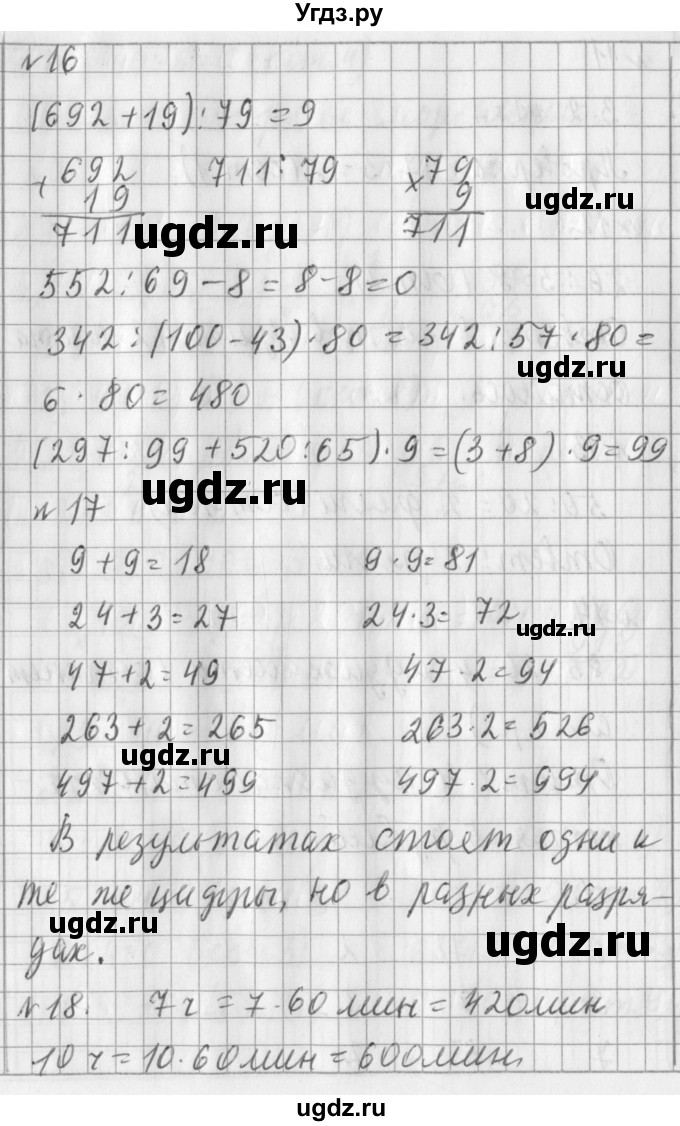 Угдз.ру
№16
(692+19):79=9
+692 711:79 ×79
19 9
711 711
ugdz.ru
ugdz.ru
552:69-8=8-8=0
342:(100-43)·80=342:57·80=
ugdz.ru
6·80=480
(297:99+520:65)·9=(3+8)·9=99
ugdz.ru
№17
9+9=18 9·9=81
24+3=27 24·3=72
ugdz.ru
47+2=49 47·2=94
263+2=265 263·2=526
ugdz.ru
497+2=499 497·2=994
В результатах стоят одни и
те же цифры, но в разных разря-
ugdz.ru
ugdz.ru
дах.
№18. 7ч=7·60мин=420мин
10ч=10·60мин=600мин
ugdz.ru